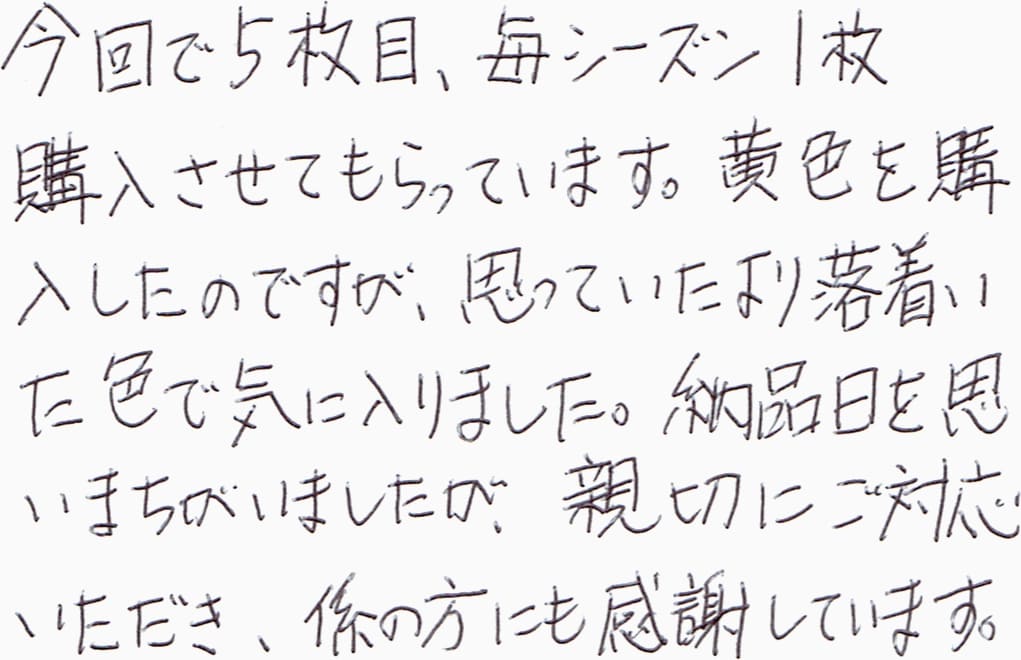 今回で5枚目、毎シーズン1枚
購入させてもらっています。黄色を購
入したのですが、思っていたより落着い
た色で気に入りました。納品日を思
いまちがいましたが、親切にご対応
いただき、係の方にも感謝しています。